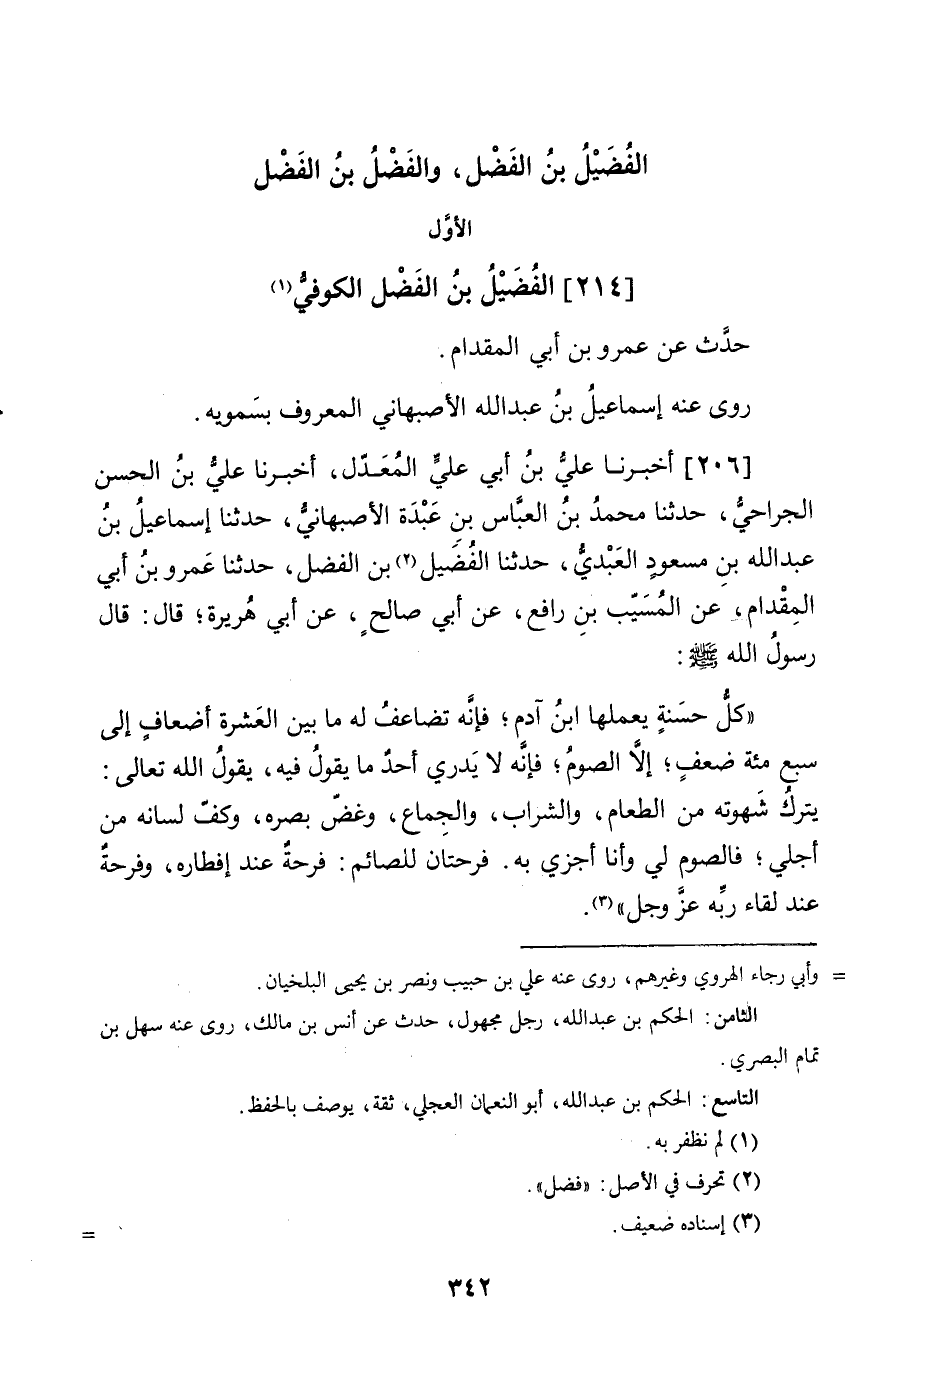 الفُضَيْلُ بنُ الفَضْل، والفَضْلُ بنُ الفَضْل
الأوَّل
[٢١٤] الفُضَيْلُ بنُ الفَضْل الكوفيُّ(١)
حدَّث عن عمرو بن أبي المقدام.
روى عنه إسماعيلُ بنُ عبدالله الأصبهاني المعروف بسَمويه.
[٢٠٦] أخبرنا عليُّ بنُ أبي عليٍّ المُعَدّل، أخبرنا عليُّ بنُ الحسن
الجراحيُّ، حدثنا محمدُ بنُ العبَّاس بنِ عَبْدَة الأصبهانيُّ، حدثنا إسماعيلُ بنُ
عبدالله بنِ مسعودٍ العَبْديُّ، حدثنا الفُضَيل(٢) بن الفضل، حدثنا عَمرو بنُ أبي
المِقْدام، عن المُسَيّب بنِ رافع، عن أبي صالحٍ، عن أبي هُريرة؛ قال: قال
رسولُ الله ﷺ:
«كلُّ حسَنةٍ يعملها ابنُ آدم؛ فإنَّه تضاعفُ له ما بين العَشرة أضعافٍ إلى
سبع مئة ضعفٍ؛ إلَّا الصومُ؛ فإنَّه لا يَدري أحدٌ ما يقولُ فيه، يقولُ الله تعالى:
يتركُ شَهوته من الطعام، والشراب، والجِماع، وغضّ بصره، وكفّ لسانه من
أجلي؛ فالصوم لي وأنا أجزي به. فرحتان للصائم: فرحةٌ عند إفطاره، وفرحةٌ
عند لقاء ربِّه عزَّ وجل»(٣).
= وأبي رجاء الهروي وغيرهم، روى عنه علي بن حبيب ونصر بن يحيى البلخيان.
الثامن: الحكم بن عبدالله، رجل مجهول، حدث عن أنس بن مالك، روى عنه سهل بن
تمام البصري.
التاسع: الحكم بن عبدالله، أبو النعمان العجلي، ثقة، يوصف بالحفظ.
(١) لم نظفر به.
(٢) تحرف في الأصل: «فضل».
(٣) إسناده ضعيف.
=
٣٤٢